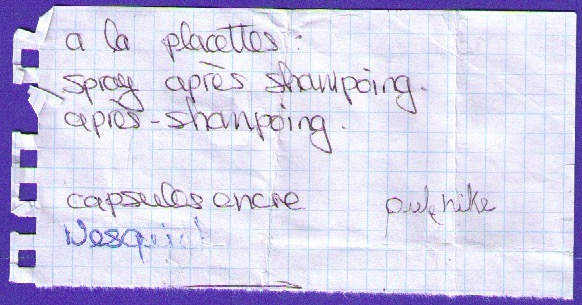 a la placettes :
spray après shampoing.
après-shampoing.
capsules encre
Nesquick